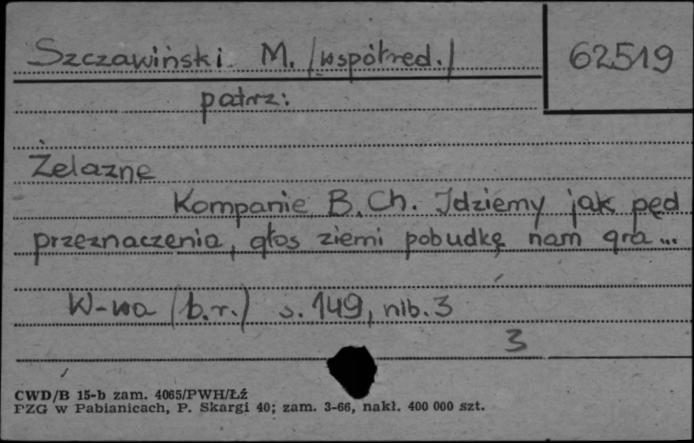 Szczawiński M. /współred./
62519
patrz:
Żelazne
Kompanie B.Ch. Idziemy jak pęd
przeznaczenia, głos ziemi pobudkę nam gra...
W-wa (b.r.) s. 149, nlb. 3
3
CWD/B 15-b zam. 4065/PWH/Łź
PZG w Pabianicach, P. Skargi 40; zam. 3-66, nakł. 400 000 szt.